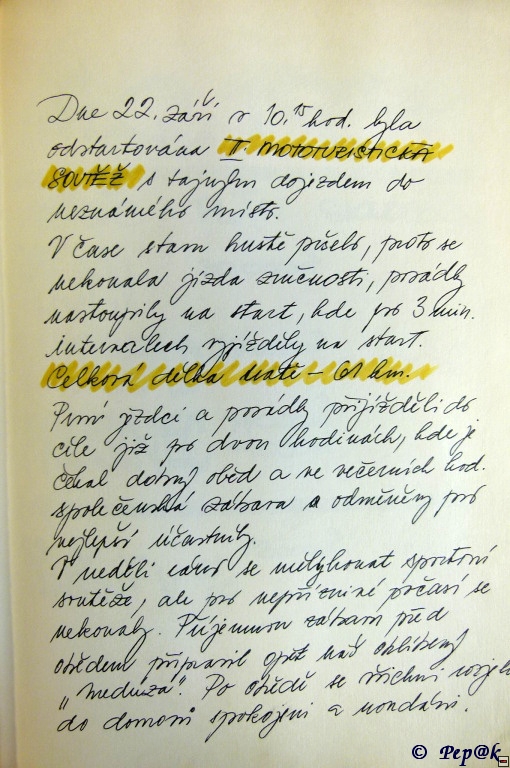 Dne 22. září v 10.15 hod. byla
odstartována II. MOTOTURISTICKÁ
SOUTĚŽ s tajným dojezdem do
neznámého místa.
V čase startu hustě pršelo, proto se
nekonala jízda zručnosti, posádky
nastoupily na start, kde po 3 min.
intervalech vyjížděly na start.
Celková délka tratě - 61 km.
První jezdci a posádky přijížděli do
cíle již po dvou hodinách, kde je
čekal dobrý oběd a ve večerních hod.
společenská zábava a odměněny pro
nejlepší účastníky.
V neděli ráno se měly konat sportovní
soutěže, ale pro nepříznivé počasí se
nekonaly. Příjemnou zábavu před
obědem připravil opět náš oblíbený
„Meduza". Po obědě se všichni rozjeli
do domovů spokojeni a
© Pep@k